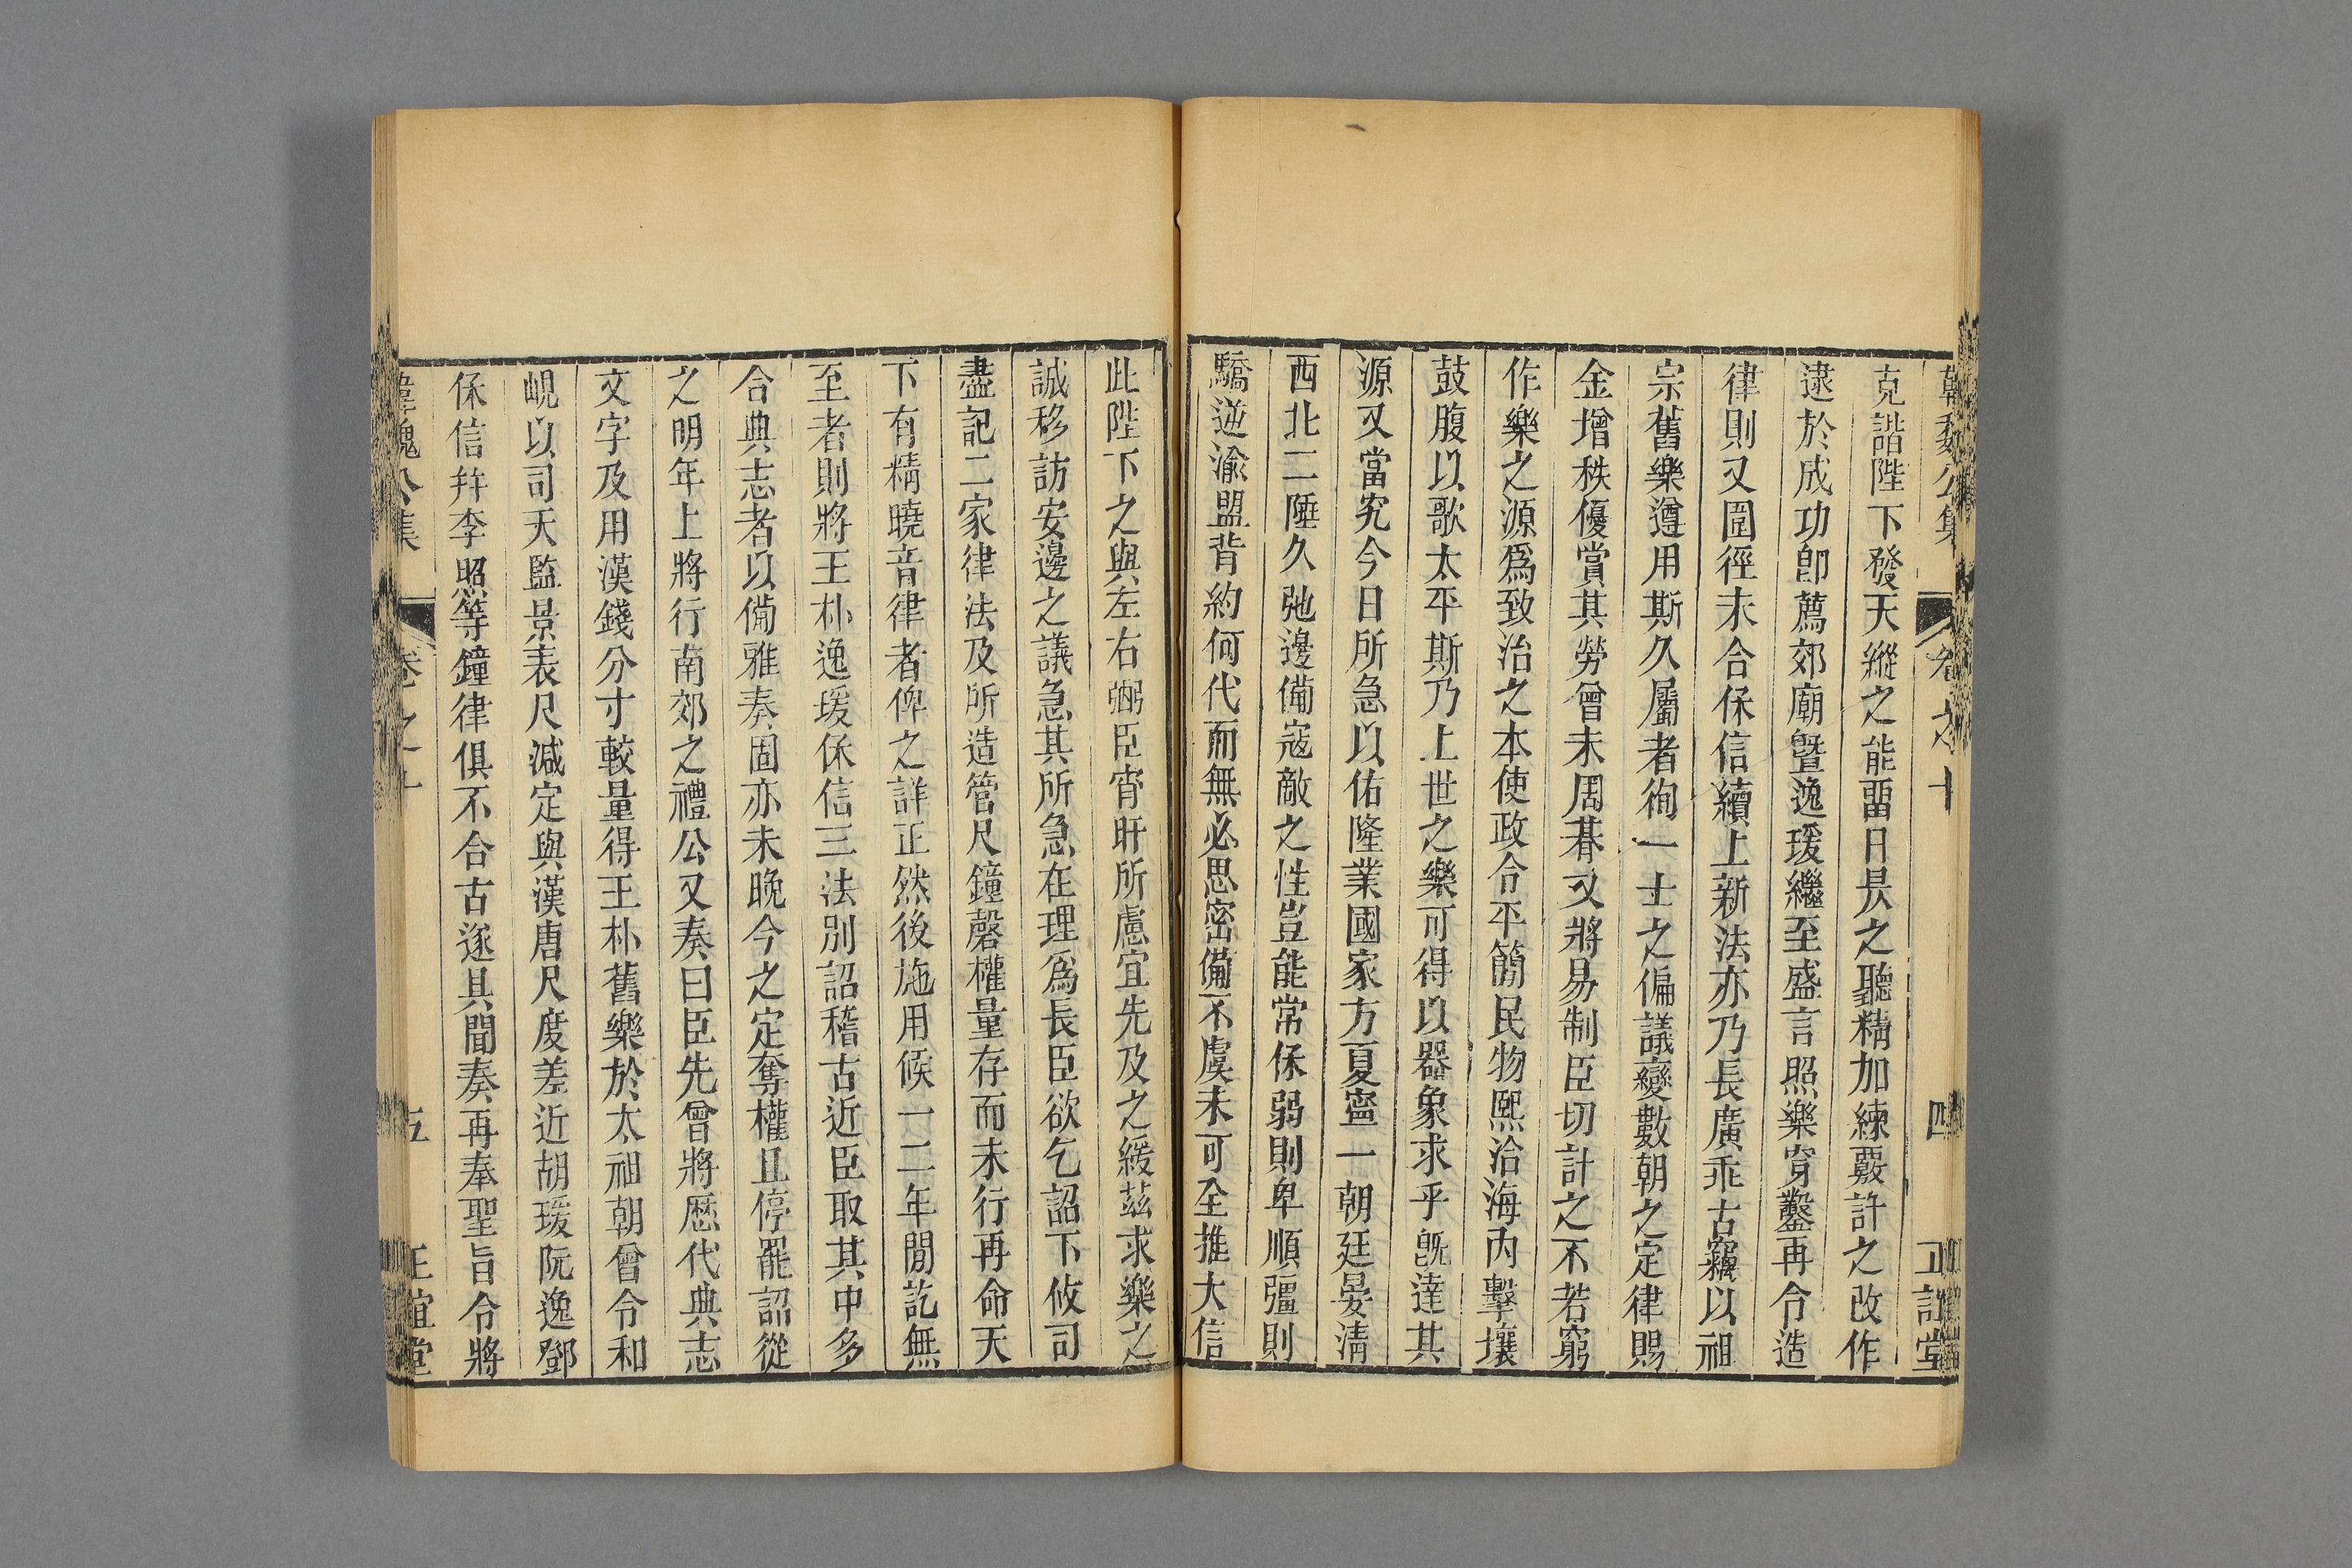 韓魏公集 卷之十 四 正誼堂
克諧陛下發天縱之能畱日昃之聽精加練覈許之改作
逮於成功卽薦郊廟曁逸瑗繼至盛言照樂穿鑿再令造
律則又圍徑未合保信續上新法亦乃長廣乖古竊以祖
宗舊樂遵用斯久屬者徇一士之偏議變數朝之定律賜
金增秩優賞其勞曾未周朞又將易制臣切計之不若窮
作樂之源爲致治之本使政令平簡民物熙洽海內擊壤
鼓腹以歌太平斯乃上世之樂可得以器象求乎旣達其
源又當究今日所急以佑隆業國家方夏寧一朝廷晏淸
西北二陲久弛邊備寇敵之性豈能常保弱則卑順彊則
驕逆渝盟背約何代而無必思密備不虞未可全推大信
此陛下之與左右弼臣宵旰所慮宜先及之緩茲求樂之
誠移訪安邊之議急其所急在理爲長臣欲乞詔下攸司
盡記二家律法及所造管尺鐘磬權量存而未行再命天
下有精曉音律者俾之詳正然後施用候一二年閒訖無
至者則將王朴逸瑗保信三法別詔稽古近臣取其中多
合典志者以備雅奏固亦未晚今之定奪權且停罷詔從
之明年上將行南郊之禮公又奏曰臣先曾將歷代典志
文字及用漢錢分寸較量得王朴舊樂於太祖朝曾令和
峴以司天監景表尺減定與漢唐尺度差近胡瑗阮逸鄧
保信幷李照等鐘律俱不合古逐具聞奏再奉聖旨令將
韓魏公集 卷之十 五 正誼堂